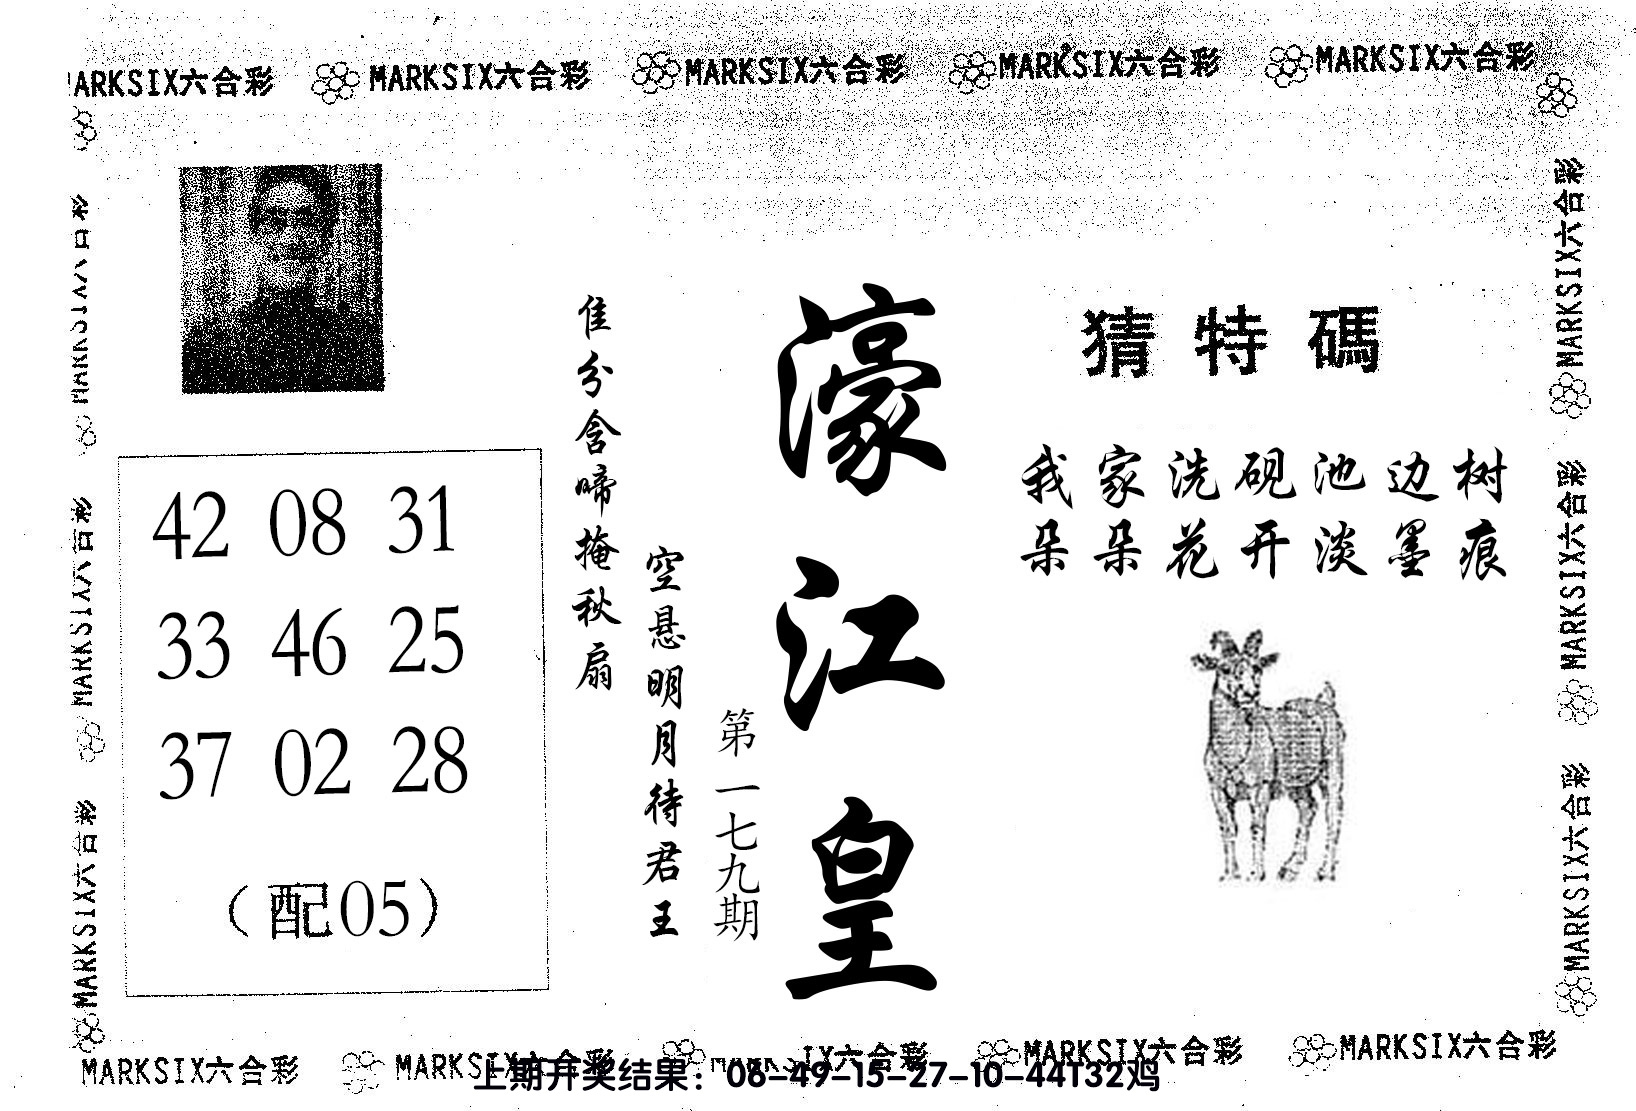 MARKSIX六合彩 MARKSIX六合彩 MARKSIX六合彩 MARKSIX六合彩 MARKSIX六合彩
猜特碼
我家洗砚池边树
朵朵花开淡墨痕
濠江皇
第一七九期
空悬明月待君王
隹分含啼掩秋扇
42 08 31
33 46 25
37 02 28
（配05）
MARKSIX六合彩
MARKSIX六合彩
MARKSIX六合彩
MARKSIX六合彩
MARKSIX六合彩
MARKSIX六合彩
MARKSIX六合彩 MARKSIX六合彩 MARKSIX六合彩 MARKSIX六合彩 MARKSIX六合彩
上期开奖结果：06-49-15-27-10-44T32鸡